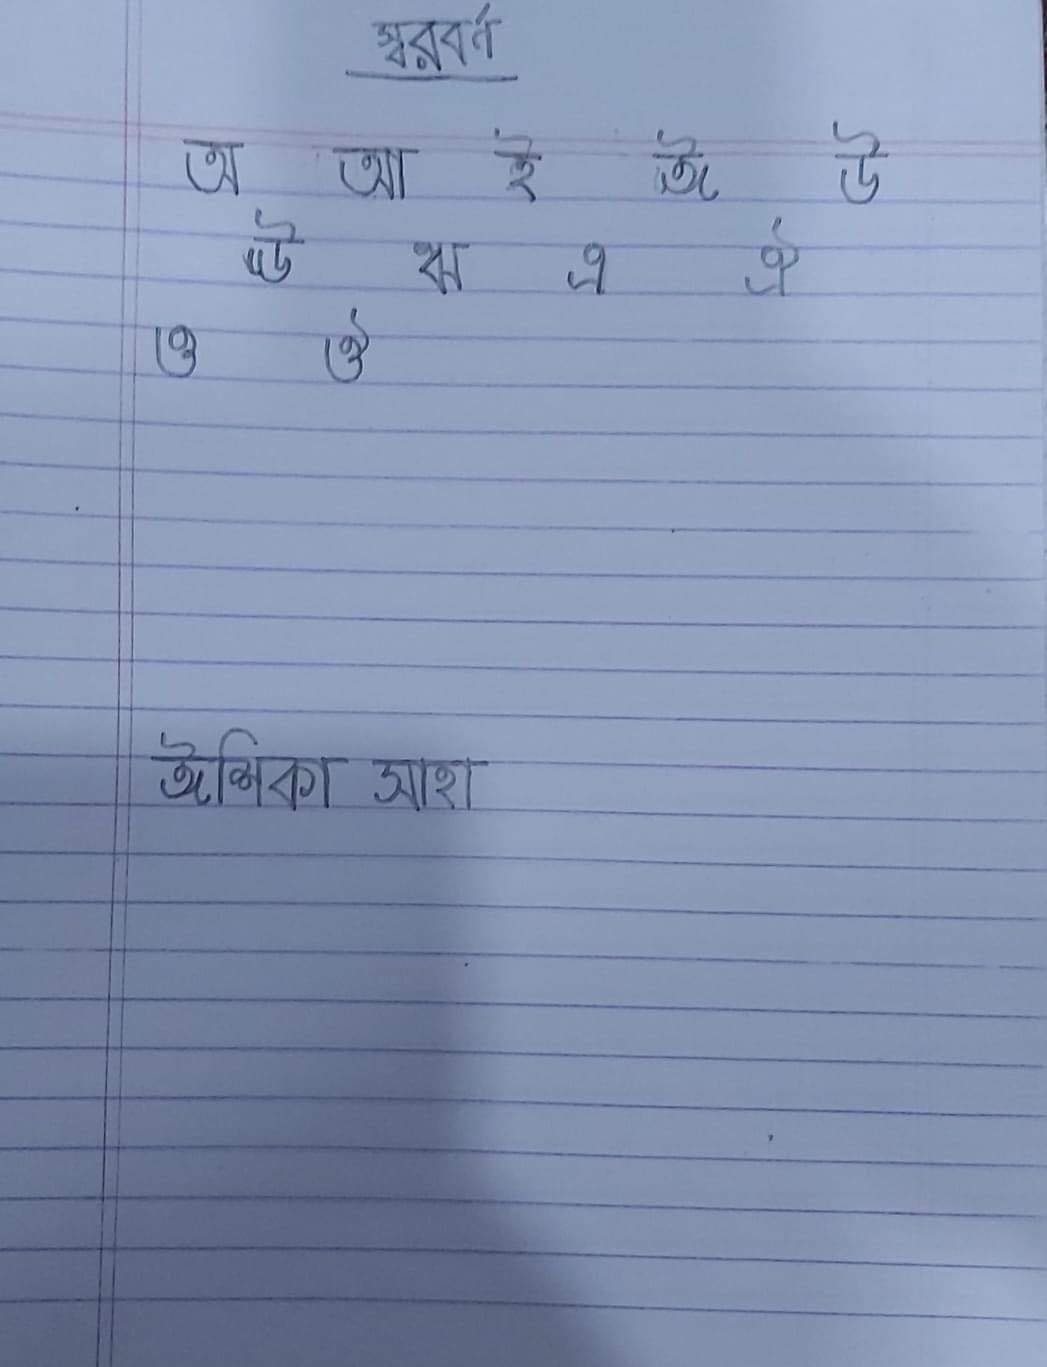 স্বরবর্ণ
অ আ ই ঈ উ
ঊ ঋ এ ঐ
ও ঔ
ঈশিকা সাহা